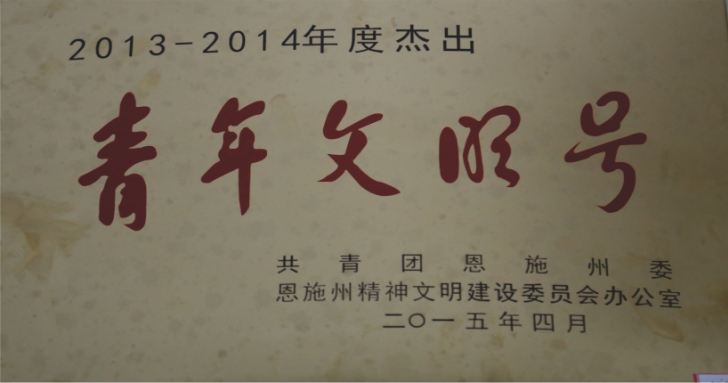 2013-2014年度杰出
青年文明号
共青团恩施州委
恩施州精神文明建设委员会办公室
二〇一五年四月